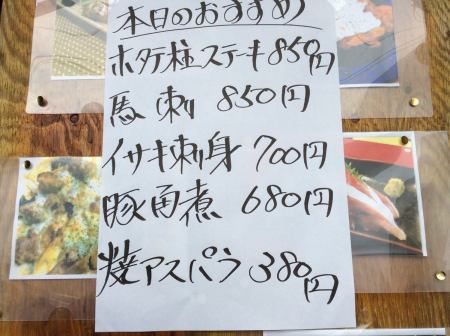 本日のおすすめ
ホタテ柱ステーキ850円
馬刺 850円
イサキ刺身 700円
豚角煮 680円
焼アスパラ 380円